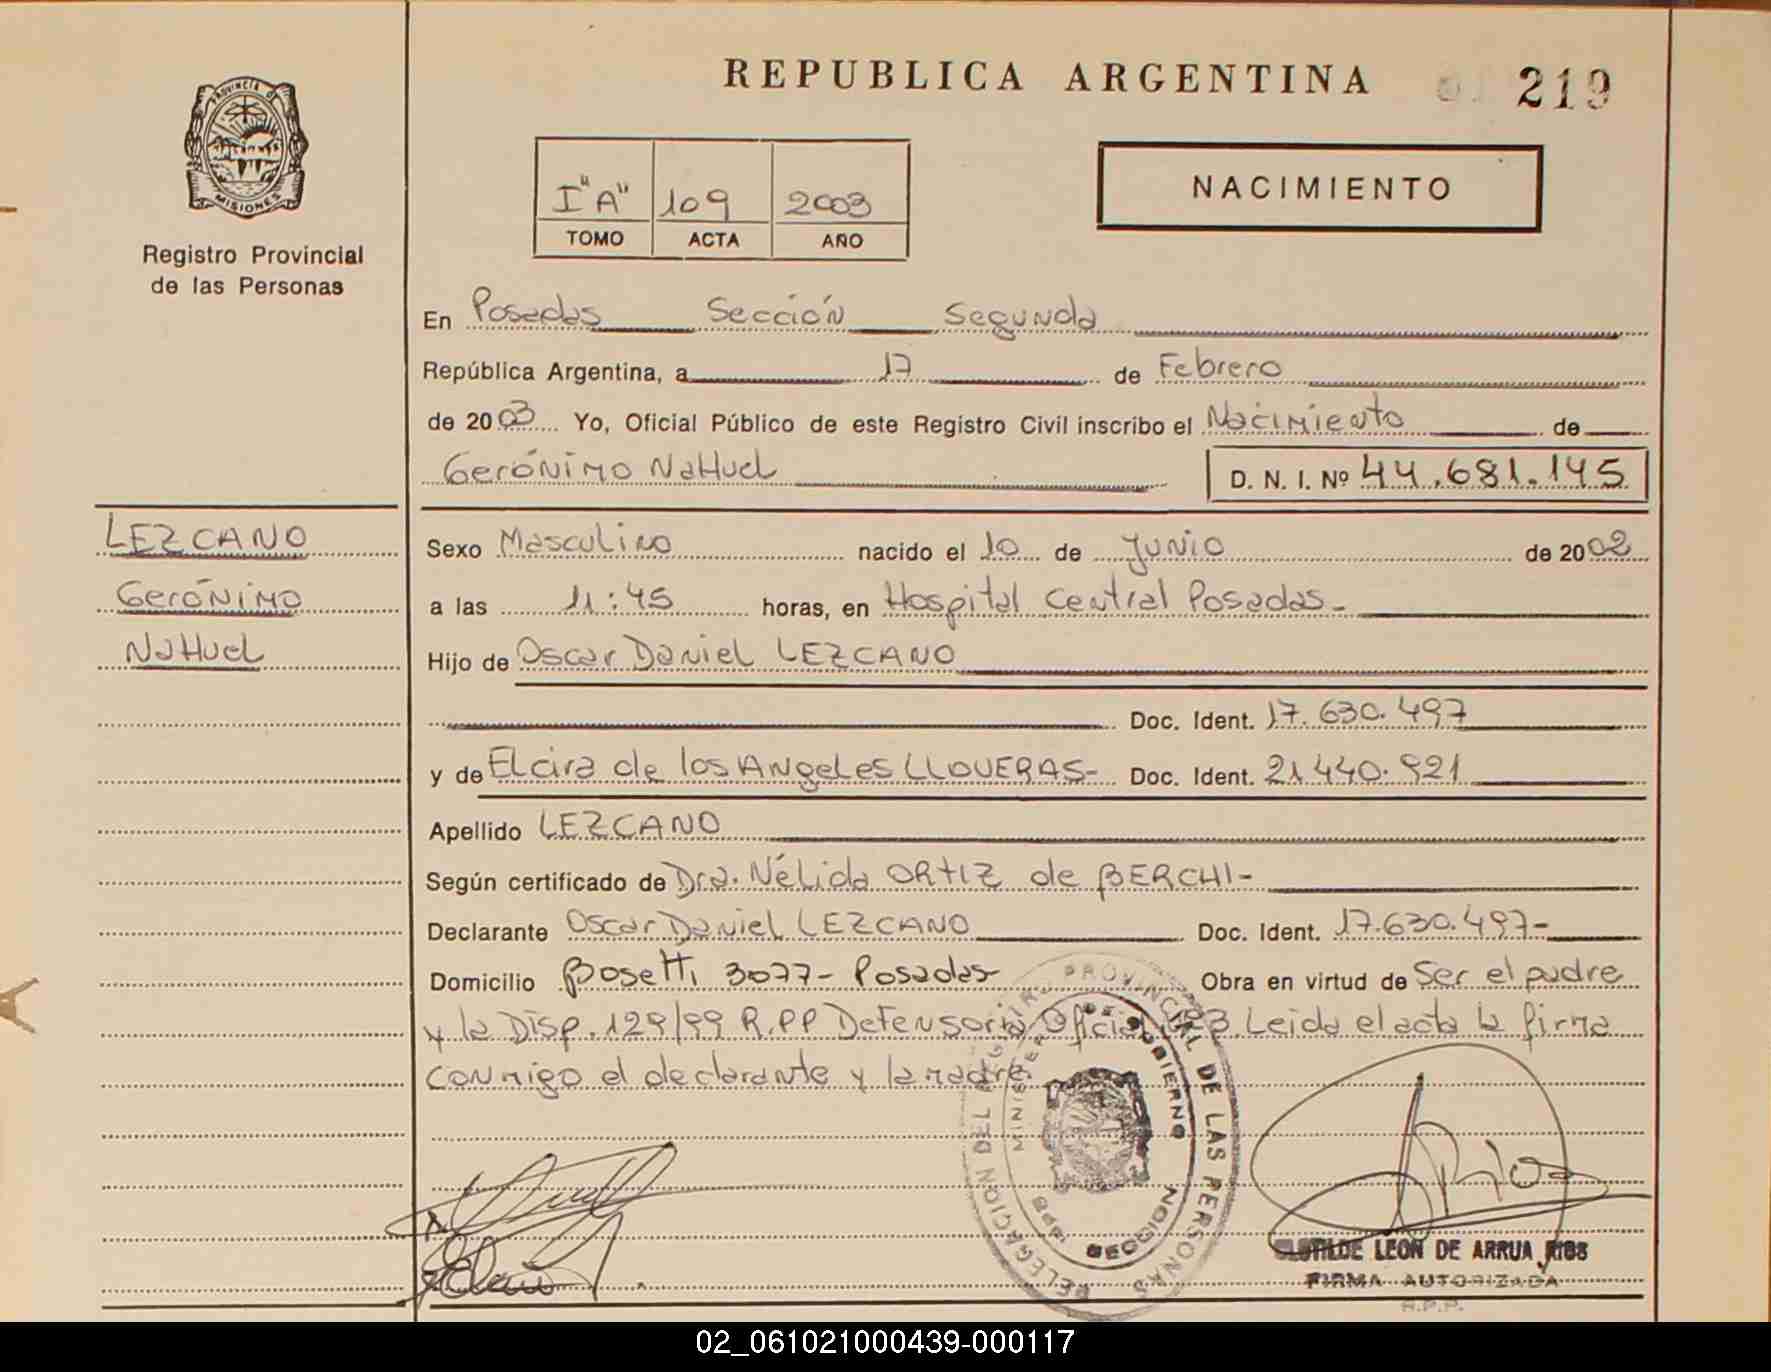 REPUBLICA ARGENTINA
219
PROVINCIA DE
MISIONES
Registro Provincial
de las Personas
I "A" 109 2003
TOMO ACTA AÑO
NACIMIENTO
En Posadas Sección Segunda
República Argentina, a 17 de Febrero
de 2003 Yo, Oficial Público de este Registro Civil inscribo el Nacimiento de
Gerónimo Nahuel D. N. I. Nº 44.681.145
LEZCANO
Gerónimo
Nahuel
Sexo Masculino nacido el 10 de Junio de 2002
a las 11:45 horas, en Hospital Central Posadas-
Hijo de Oscar Daniel LEZCANO
Doc. Ident. 17.630.497
y de Elcira de los Angeles LLOVERAS- Doc. Ident. 21.440.921
Apellido LEZCANO
Según certificado de Dra. Nélida ORTIZ de BERCHI-
Declarante Oscar Daniel LEZCANO Doc. Ident. 17.630.497-
Domicilio Bosetti 3077- Posadas- Obra en virtud de Ser el padre
y la Disp. 129/99 R.P.P Defensoria Oficial 3. Leida el acta la firma
conmigo el declarante y la madre.
DELEGACION DEL REGISTRO PROVINCIAL DE LAS PERSONAS
MINISTERIO DE GOBIERNO
SECCION
CLOTILDE LEON DE ARRUA RIOS
FIRMA AUTORIZADA
R.P.P.
02_061021000439-000117